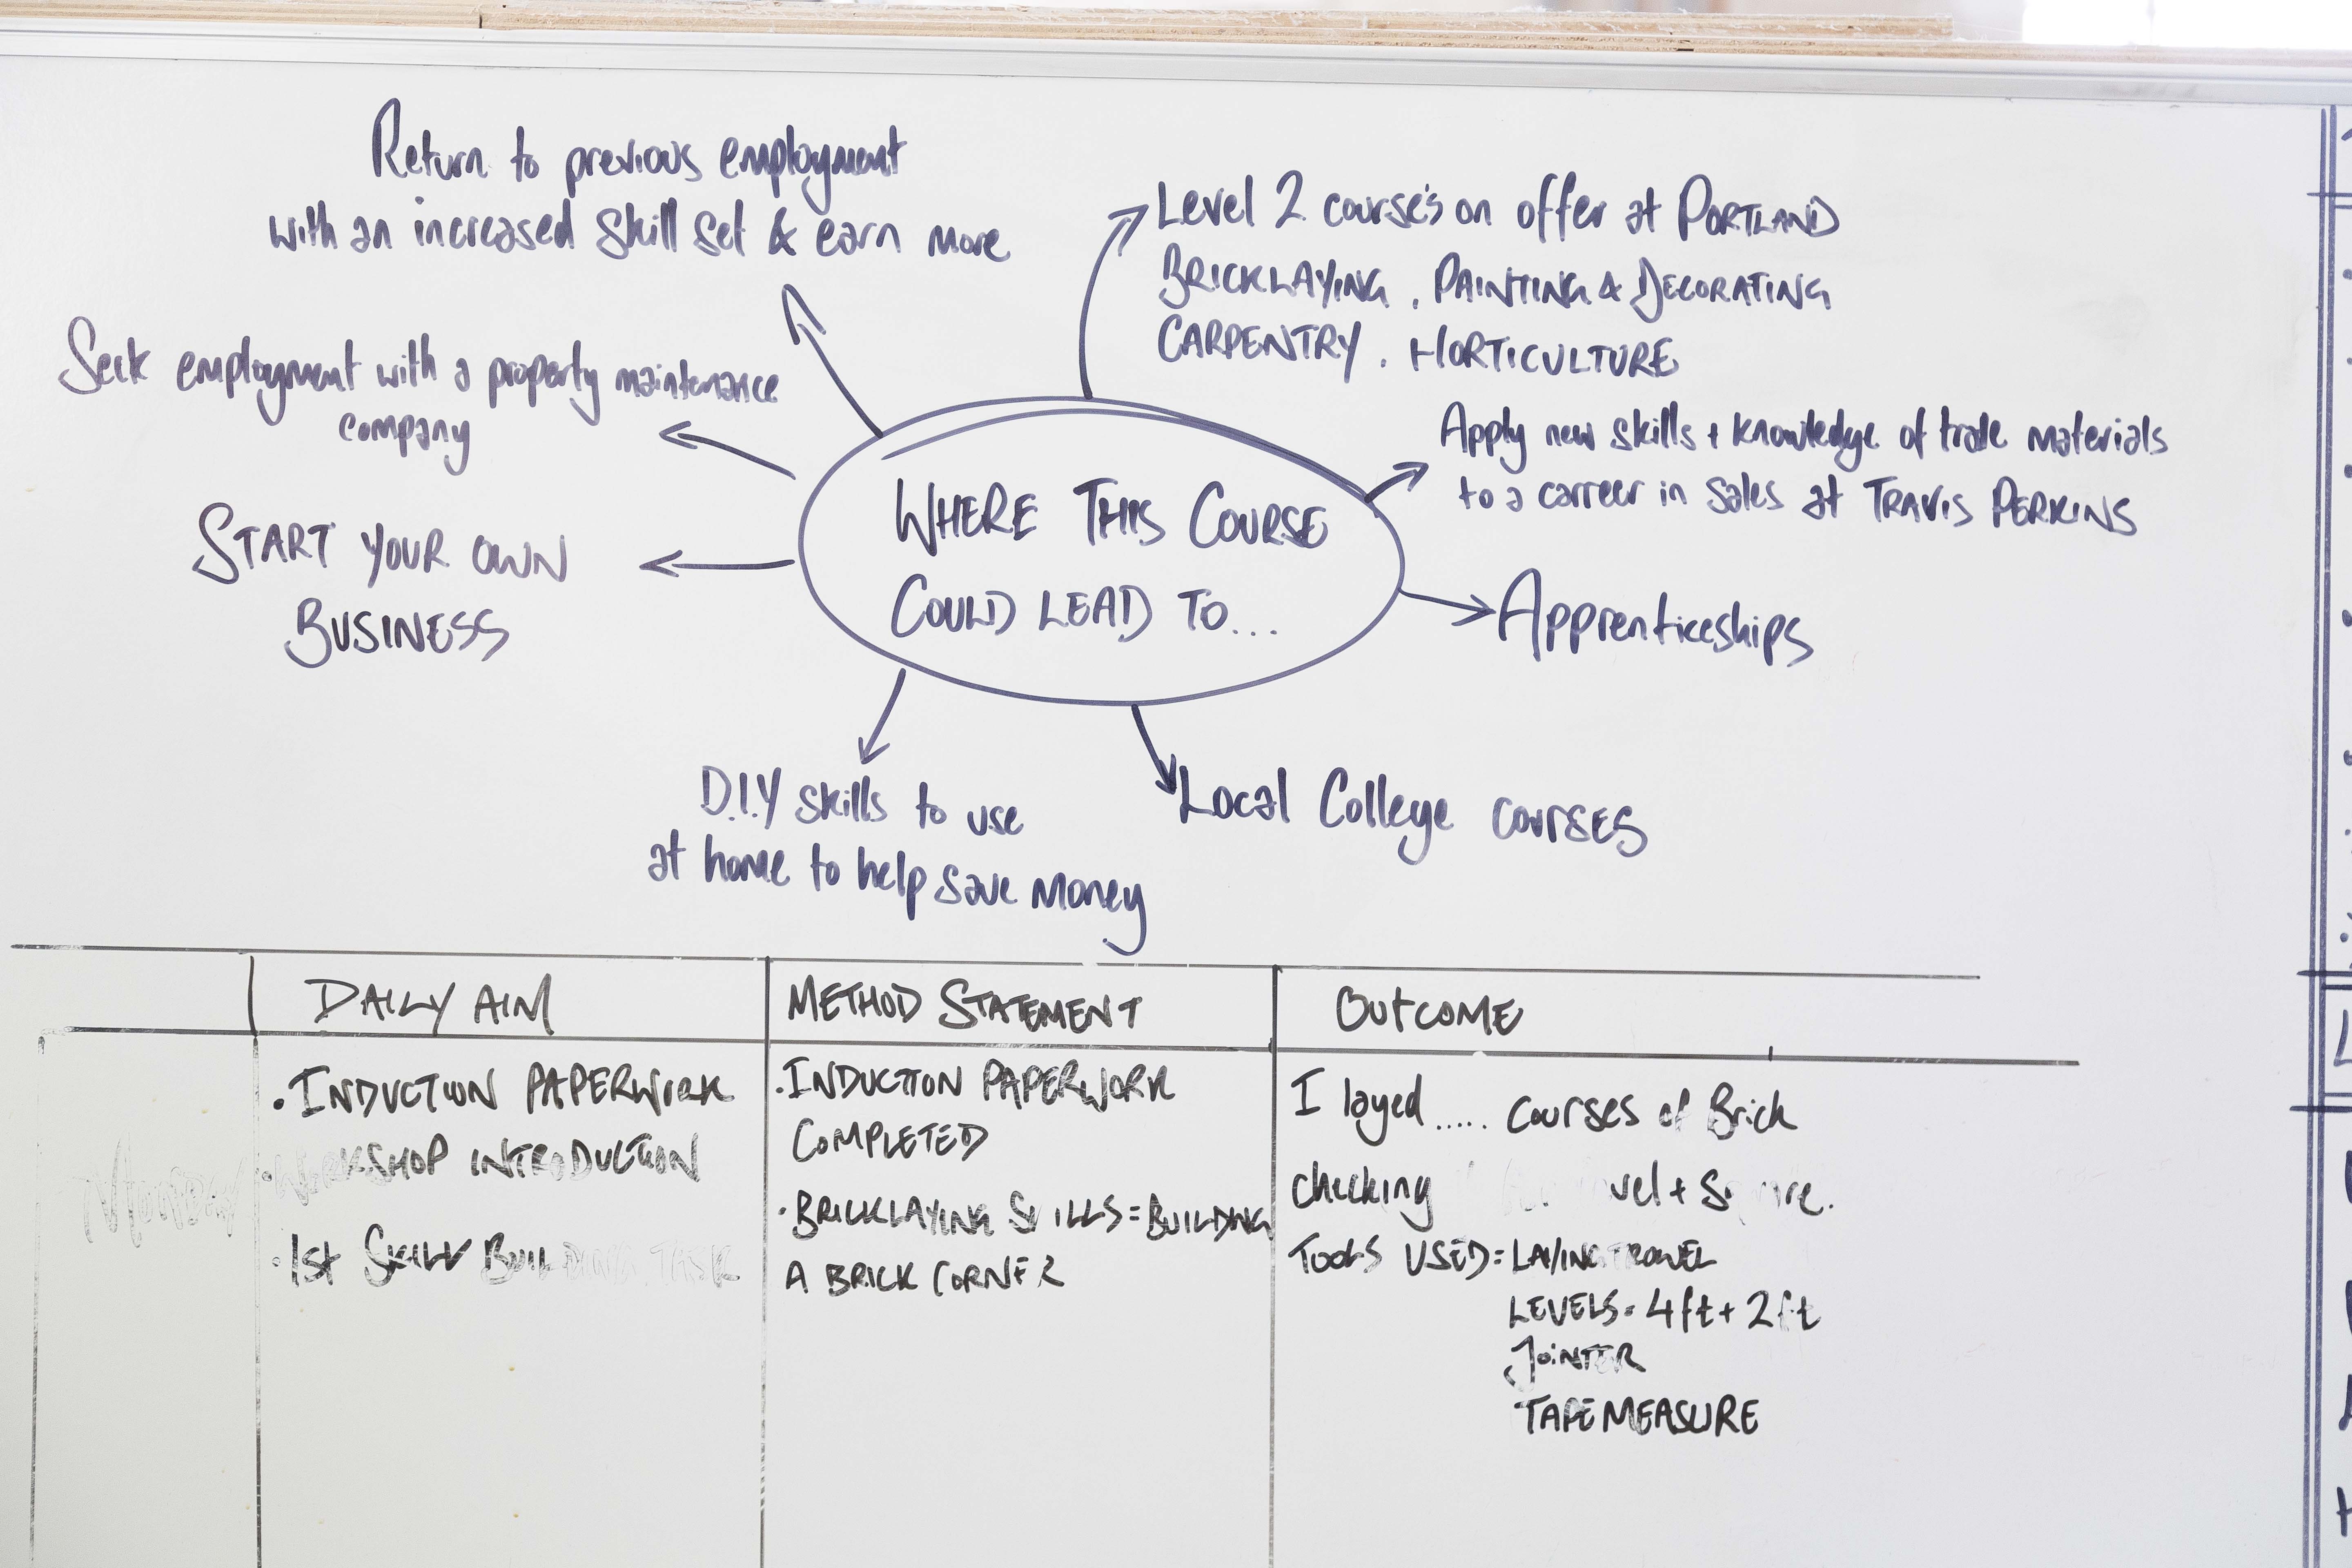 Return to previous employment
with an increased skill set & earn more
Level 2 course's on offer at PORTLAND
BRICKLAYING, PAINTING & DECORATING
CARPENTRY, HORTICULTURE
Seek employment with a property maintenance
company
Apply new skills + knowledge of trade materials
to a carreer in sales at TRAVIS PERKINS
START YOUR OWN
BUSINESS
WHERE THIS COURSE
COULD LEAD TO...
Apprenticeships
D.I.Y skills to use
at home to help save money
Local College courses
DAILY AIM
METHOD STATEMENT
OUTCOME
Monday
. INDUCTION PAPERWORK
. WORKSHOP INTRODUCTION
. 1st SKILL BUILDING TASK
. INDUCTION PAPERWORK
COMPLETED
. BRICKLAYING SKILLS = BUILDING
A BRICK CORNER
I layed ..... courses of Brick
checking
Square.
TOOLS USED: LAYING TROWEL
LEVELS. 4ft + 2ft
JOINTER
TAPE MEASURE